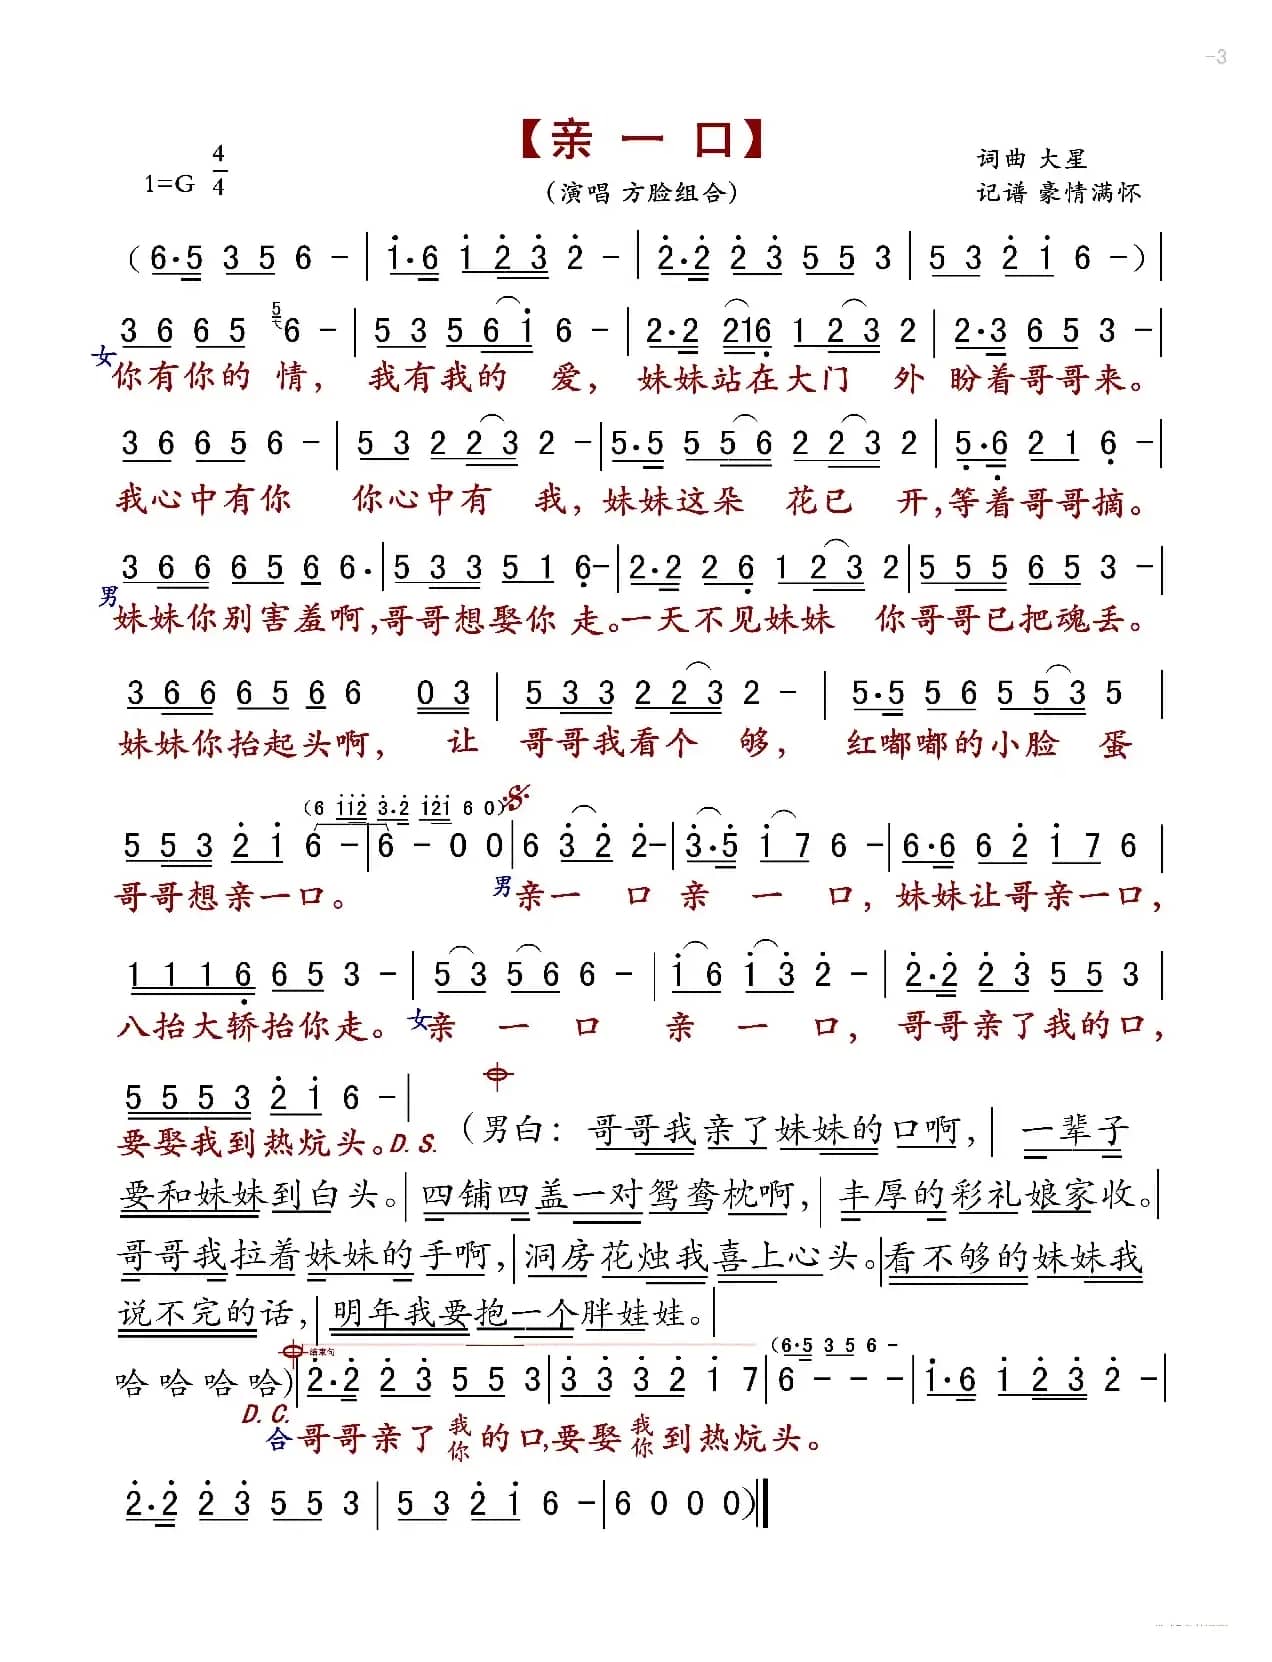 -3
【亲 一 口】
1=G 4/4
(演唱 方脸组合)
词曲 大星
记谱 豪情满怀
(6·5 3 5 6 - | i·6 i 2 3 2 - | 2·2 2 3 5 5 3 | 5 3 2 i 6 -) |
3 6 6 5 5 6 - | 5 3 5 6 i 6 - | 2·2 216 1 2 3 2 | 2·3 6 5 3 - |
女 你有你的 情， 我有我的 爱， 妹妹站在大门 外 盼着哥哥来。
3 6 6 5 6 - | 5 3 2 2 3 2 - | 5·5 5 5 6 2 2 3 2 | 5·6 2 1 6 - |
我心中有你 你心中有 我，妹妹这朵 花已 开，等着哥哥摘。
3 6 6 6 5 6 6· | 5 3 3 5 1 6 - | 2·2 2 6 1 2 3 2 | 5 5 5 6 5 3 - |
男 妹妹你别害羞啊，哥哥想娶你 走。一天不见妹妹 你哥哥已把魂丢。
3 6 6 6 5 6 6 0 3 | 5 3 3 2 2 3 2 - | 5·5 5 6 5 5 3 5 |
妹妹你抬起头啊， 让 哥哥我看个 够， 红嘟嘟的小脸 蛋
(6 i i 2 3·2 i 2 i 6 0)
5 5 3 2 i 6 - | 6 - 0 0 | 6 3 2 2 - | 3·5 i 7 6 - | 6·6 6 2 i 7 6 |
哥哥想亲一口。 男 亲一 口 亲 一 口，妹妹让哥亲一口，
1 1 1 6 6 5 3 - | 5 3 5 6 6 - | i 6 i 3 2 - | 2·2 2 3 5 5 3 |
八抬大轿抬你走。 女 亲 一 口 亲 一 口，哥哥亲了我的口，
5 5 5 3 2 i 6 - |
要娶我到热炕头。D.S.
(男白：哥哥我亲了妹妹的口啊，| 一辈子
要和妹妹到白头。| 四铺四盖一对鸳鸯枕啊，| 丰厚的彩礼娘家收。|
哥哥我拉着妹妹的手啊，| 洞房花烛我喜上心头。| 看不够的妹妹我
说不完的话，| 明年我要抱一个胖娃娃。|
结束句
(6·5 3 5 6 -
哈哈哈哈) | 2·2 2 3 5 5 3 | 3 3 3 2 i 7 | 6 - - - | i·6 i 2 3 2 - |
D.C.
合 哥哥亲了 我你 的口，要娶 我你 到热炕头。
2·2 2 3 5 5 3 | 5 3 2 i 6 - | 6 0 0 0) ‖